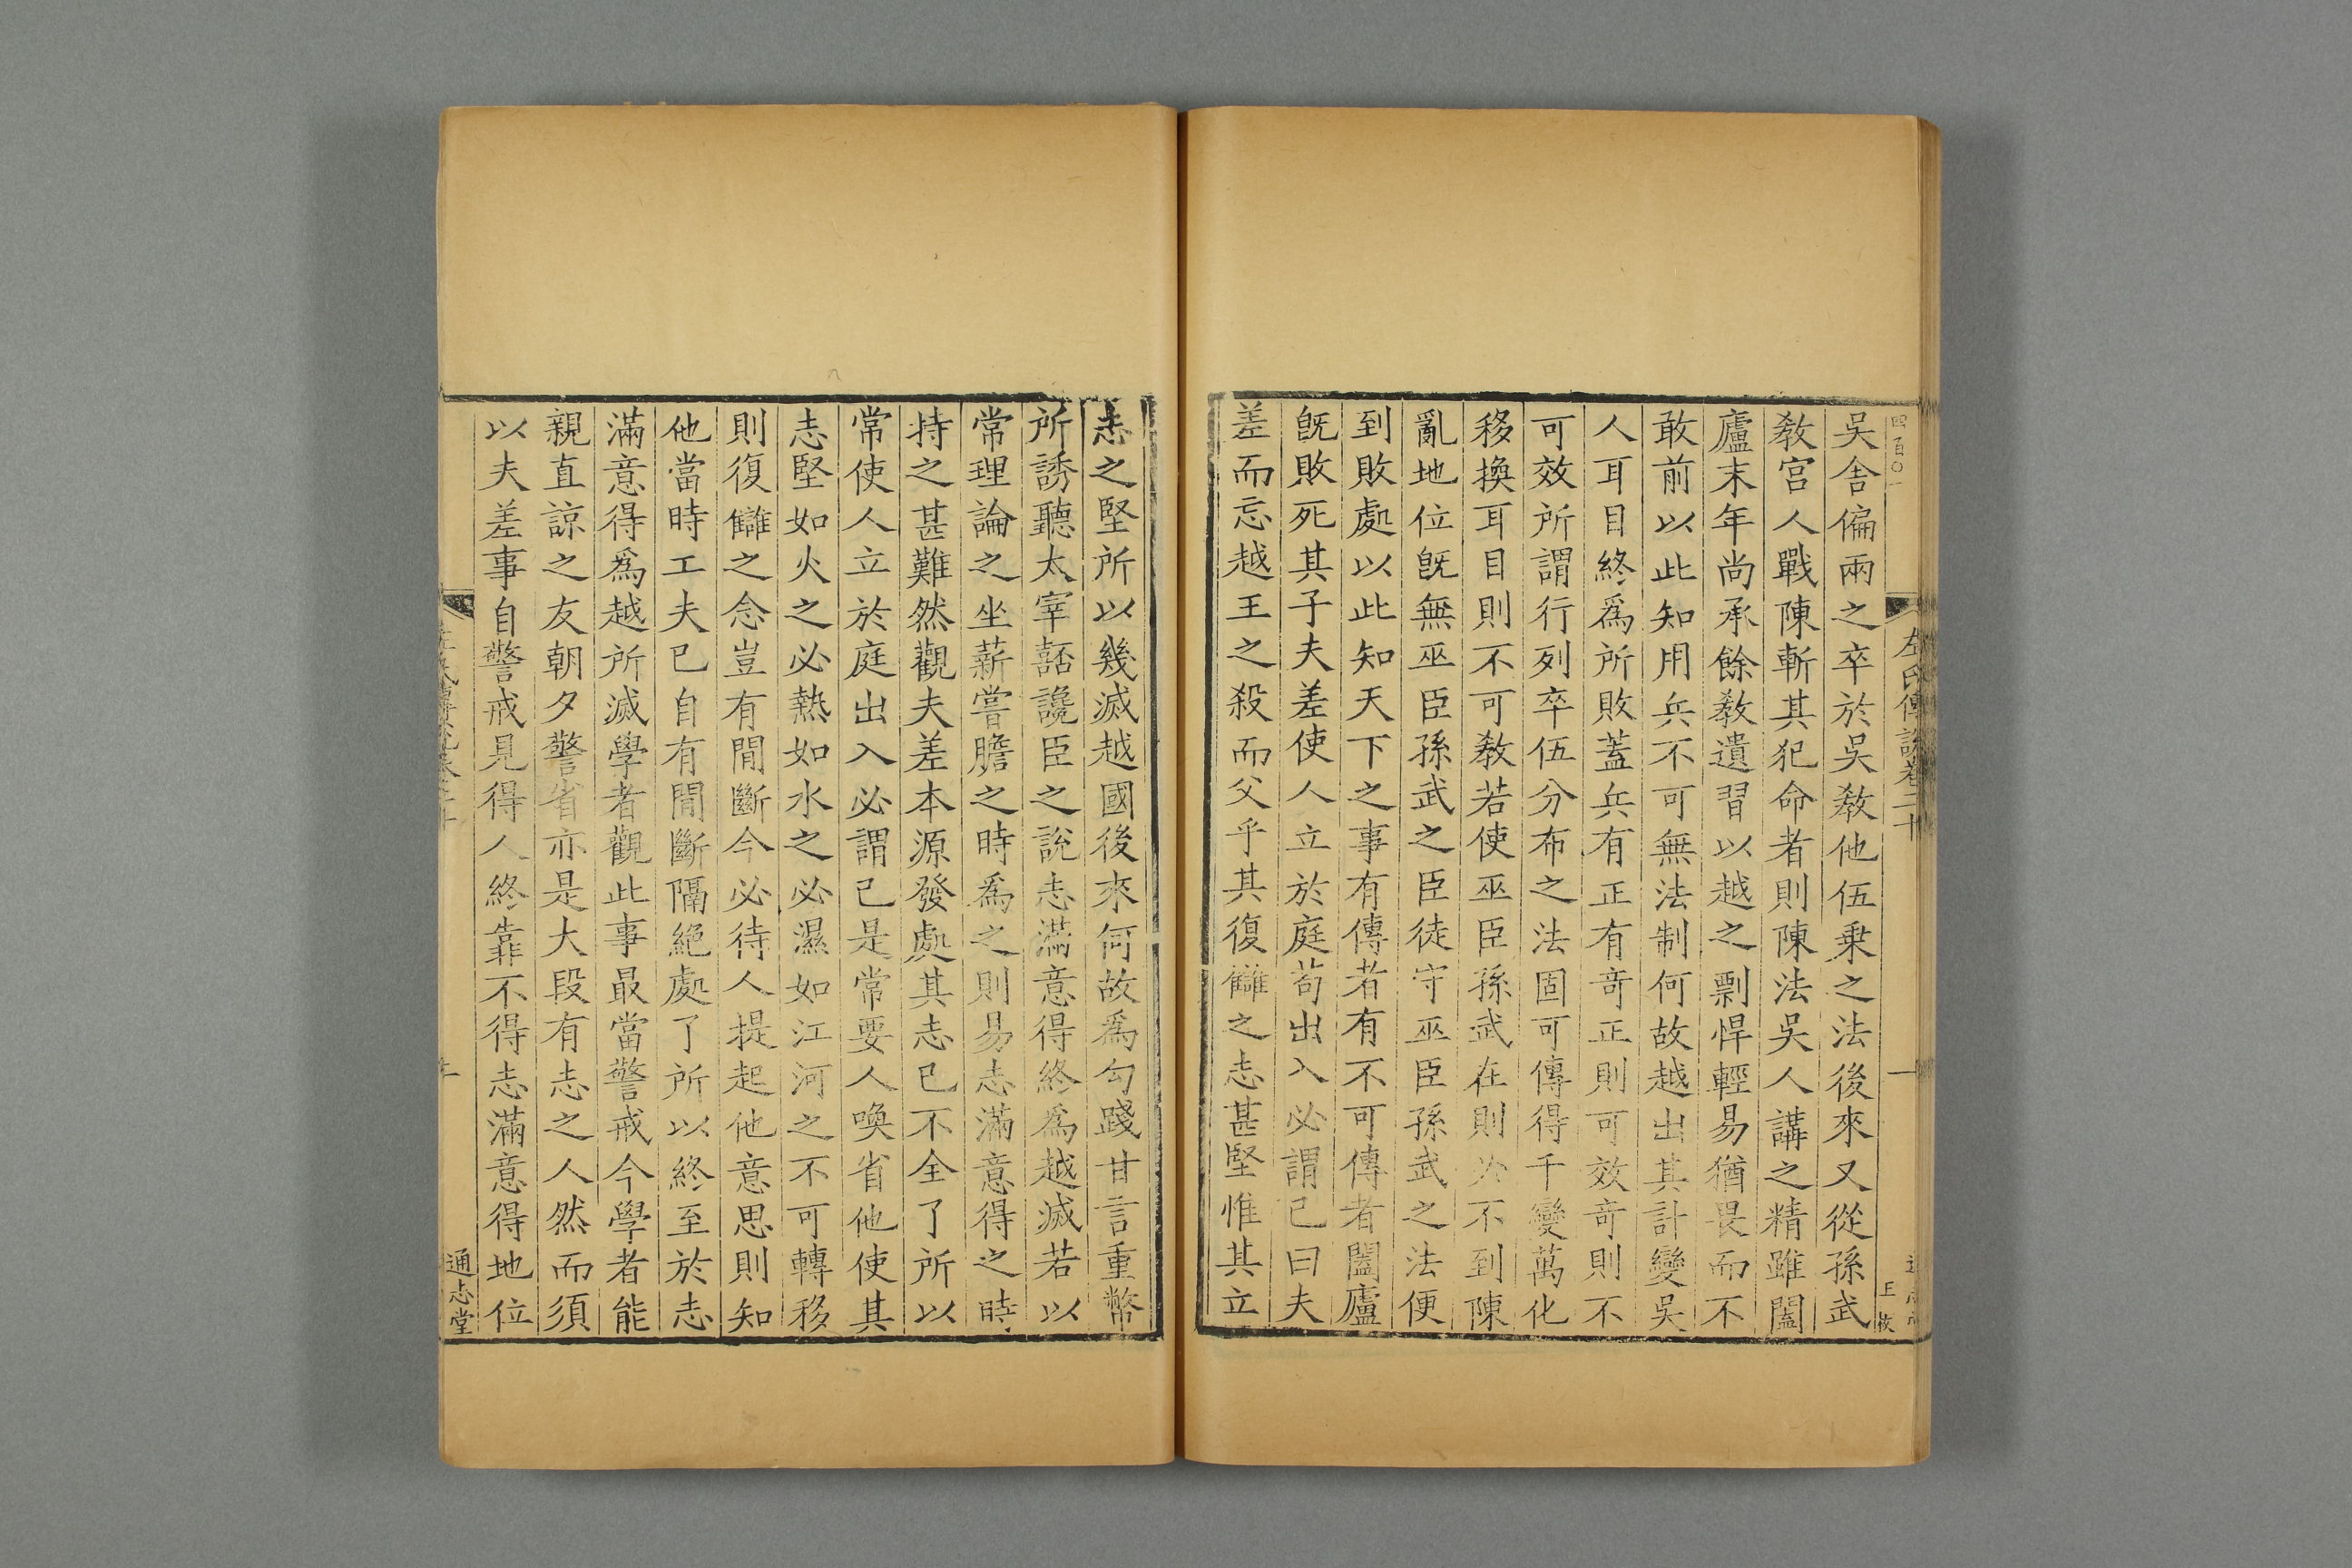 四百〇一
左氏傳說卷二十
一
吳舍偏兩之卒於吳敎他伍乗之法後來又從孫武
敎宫人戰陳斬其犯命者則陳法吳人講之精雖闔
廬末年尚承餘敎遺習以越之剽悍輕易猶畏而不
敢前以此知用兵不可無法制何故越出其計變吳
人耳目終爲所敗蓋兵有正有竒正則可效竒則不
可效所謂行列卒伍分布之法固可傳得千變萬化
移換耳目則不可敎若使巫臣孫武在則必不到陳
亂地位旣無巫臣孫武之臣徒守巫臣孫武之法便
到敗處以此知天下之事有傳者有不可傳者闔廬
旣敗死其子夫差使人立於庭苟出入必謂已曰夫
差而忘越王之殺而父乎其復讎之志甚堅惟其立
志之堅所以幾滅越國後來何故爲勾踐甘言重幣
所誘聽太宰嚭讒臣之說志滿意得終爲越滅若以
常理論之坐薪嘗膽之時爲之則易志滿意得之時
持之甚難然觀夫差本源發處其志已不全了所以
常使人立於庭出入必謂已是常要人喚省他使其
志堅如火之必熱如水之必濕如江河之不可轉移
則復讎之念豈有間斷今必待人提起他意思則知
他當時工夫已自有間斷隔絕處了所以終至於志
滿意得爲越所滅學者觀此事最當警戒今學者能
親直諒之友朝夕警省亦是大段有志之人然而須
以夫差事自警戒見得人終靠不得志滿意得地位
通志堂